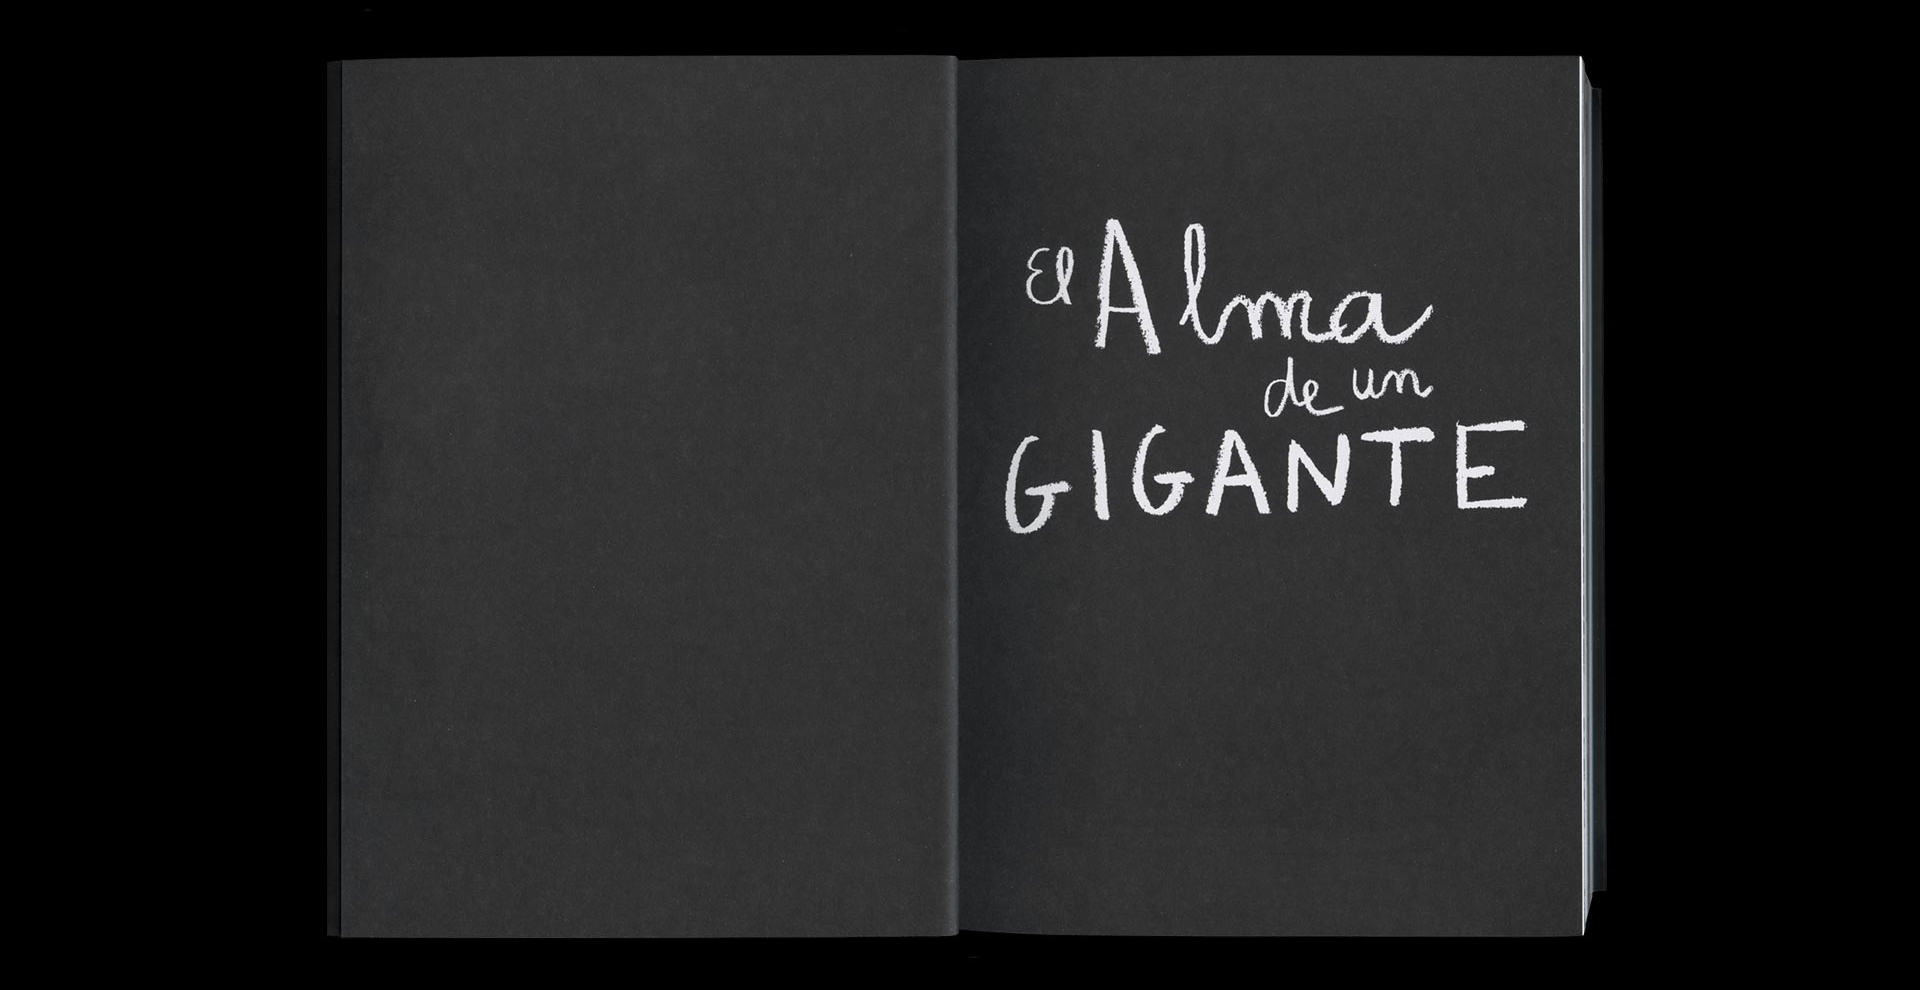 El Alma
de un
GIGANTE